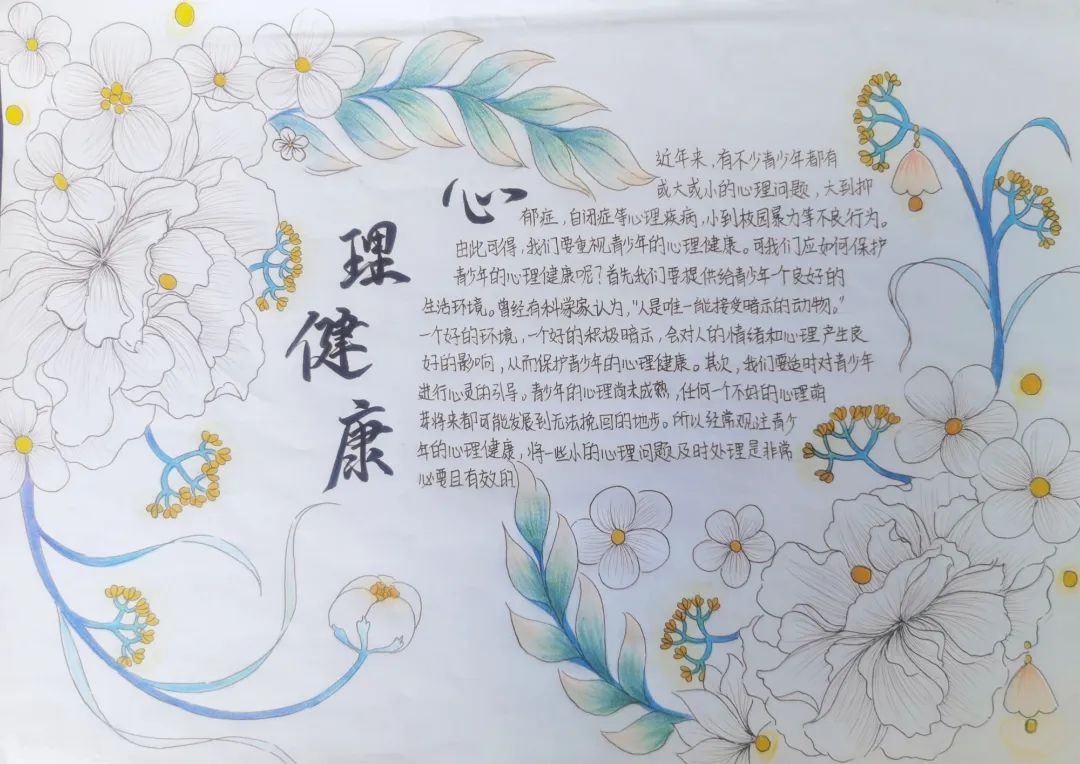 心
理
健
康
近年来,有不少青少年都有
或大或小的心理问题,大到抑
郁症,自闭症等心理疾病,小到校园暴力等不良行为。
由此可得,我们要重视青少年的心理健康。可我们应如何保护
青少年的心理健康呢?首先我们要提供给青少年个良好的
生活环境。曾经有科学家认为,“人是唯一能接受暗示的动物。”
一个好的环境,一个好的积极暗示,会对人的情绪和心理产生良
好的影响,从而保护青少年的心理健康。其次,我们要适时对青少年
进行心灵的引导。青少年的心理尚未成熟,任何一个不好的心理萌
芽将来都可能发展到无法挽回的地步。所以经常观注青少
年的心理健康,将一些小的心理问题及时处理是非常
必要且有效的